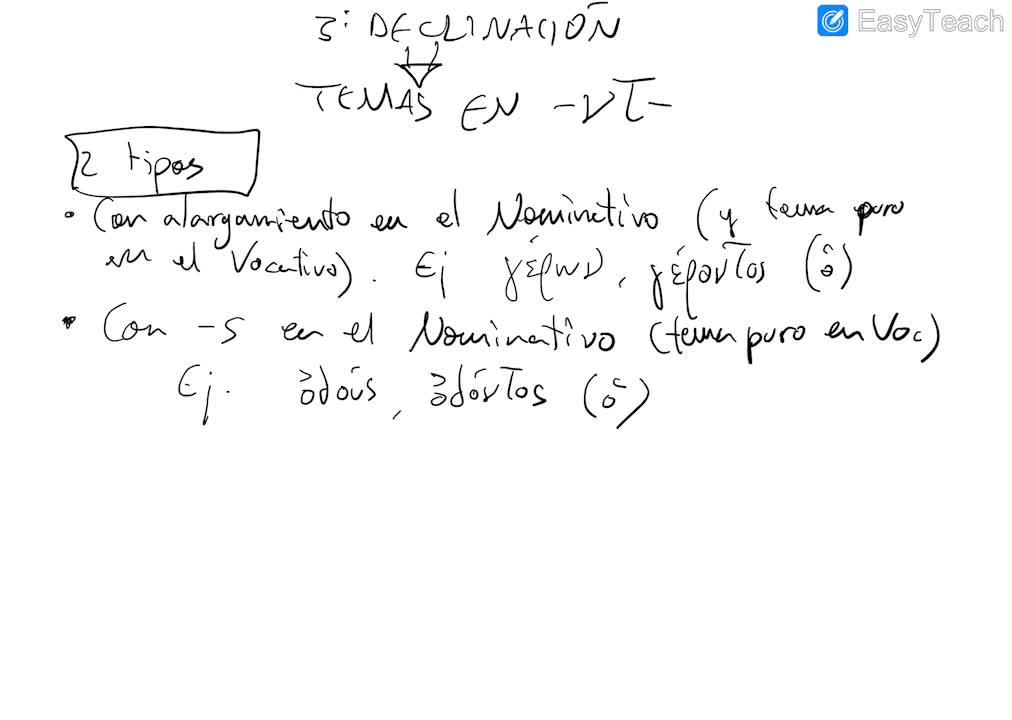 EasyTeach
3ª DECLINACIÓN
TEMAS EN -ντ-
2 tipos
• Con alargamiento en el Nominativo (y tema puro
en el Vocativo). Ej γέρων, γέροντος (ὁ)
• Con -s en el Nominativo (tema puro en Voc)
Ej. ὀδούς, ὀδόντος (ὁ)